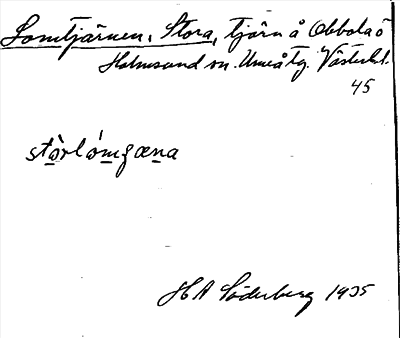 Lomtjärnen, Stora, tjärn å Obbolaö
Holmsund sn. Umeå tg. Västerbl.
45
stò̱rlóm̱gæṉa
H A Söderberg 1935